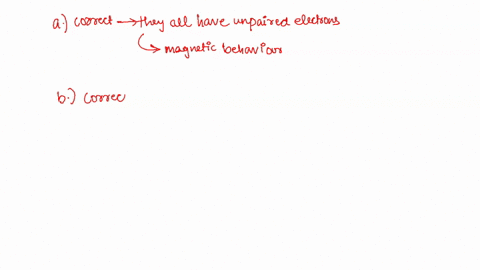 a.) correct → they all have unpaired electrons
↳ magnetic behaviour
b.) correc